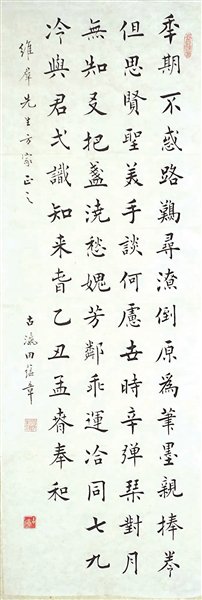 秊期不惑路難尋潦倒原為筆墨親捧
但思賢聖美手談何慮世時辛彈琹對月
無知友把盞澆愁媿芳鄰乖運洽同七九
冷與君弌識知来旾乙丑孟萅奉和
維先生方家正之
古瀛田蘊章